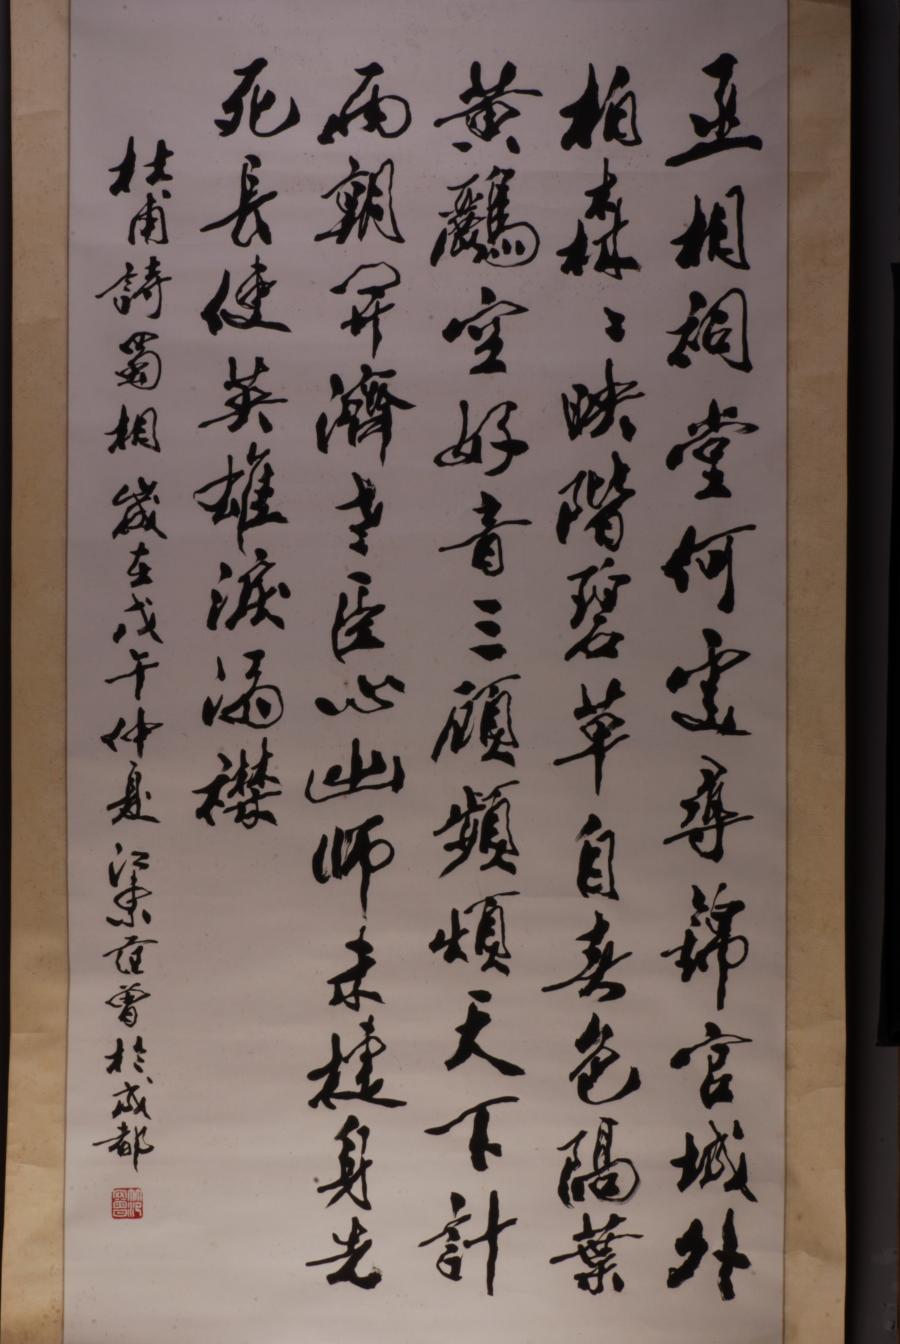 丞相祠堂何處尋錦官城外
柏森〻映階碧草自春色隔葉
黄鸝空好音三顧頻煩天下計
兩朝開濟老臣心出師未捷身先
死長使英雄淚滿襟
杜甫詩蜀相歲在戊午仲夏江東范曾於成都